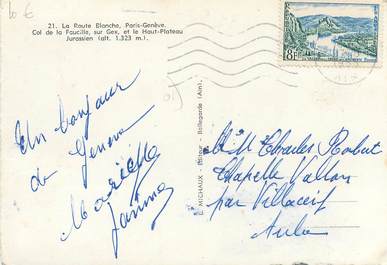 10 €
21. La Route Blanche, Paris-Genève.
Col de la Faucille, sur Gex, et le Haut-Plateau
Jurassien (alt. 1.323 m.).
8F
Un bonjour
de Genève
E. MICHAUX - Editeur - Bellegarde (Ain).
Charles Robert
Chapelle Vallon
par Villacerf
Aube